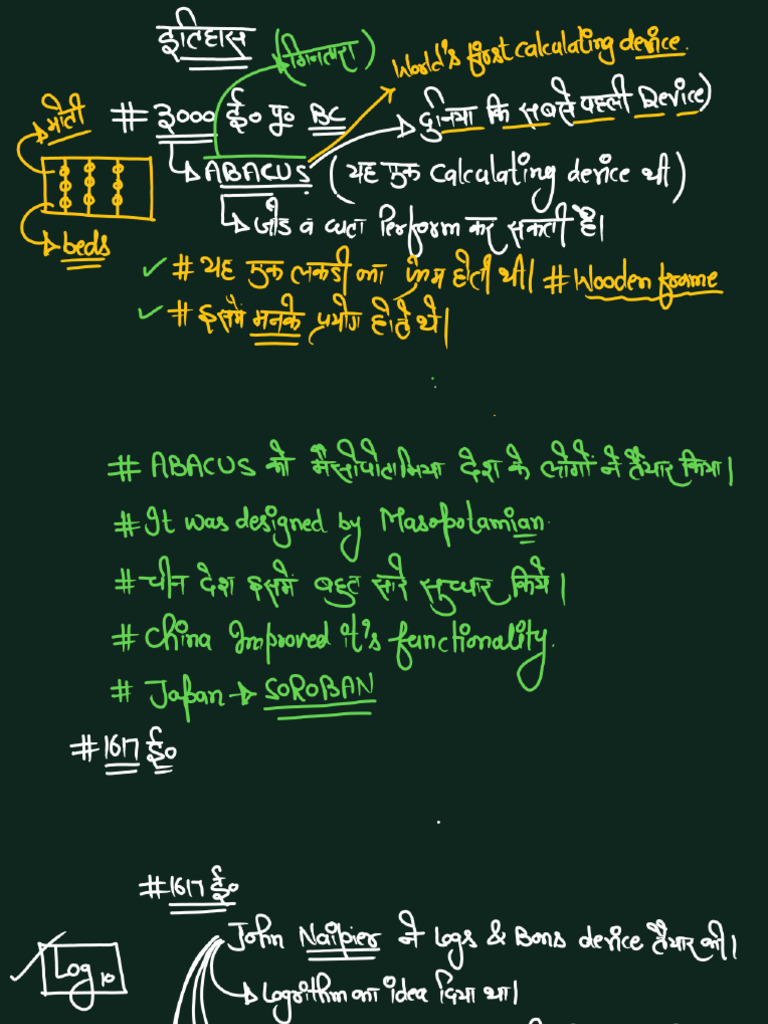 इतिहास
(गिनतारा)
World's first calculating device.
मोती
# 3000 ई० पू० BC
दुनिया कि सबसे पहली Device)
ABACUS (यह एक calculating device थी)
जोड व घटा Perform कर सकती है।
beds
# यह एक लकडी का फ्रेम होती थी। # Wooden frame
# इसमें मनके प्रयोग होते थे।
# ABACUS को मैसोपोटामिया देश के लोगों ने तैयार किया।
# It was designed by Masopotamian.
# चीन देश इसमें बहुत सारे सुध्धार किये।
# China Improved it's functionality.
# Japan → SOROBAN
# 1617 ई०
# 1617 ई०
John Naipier ने Logs & Bons device तैयार की।
Log 10
Logrithm का idea दिया था।